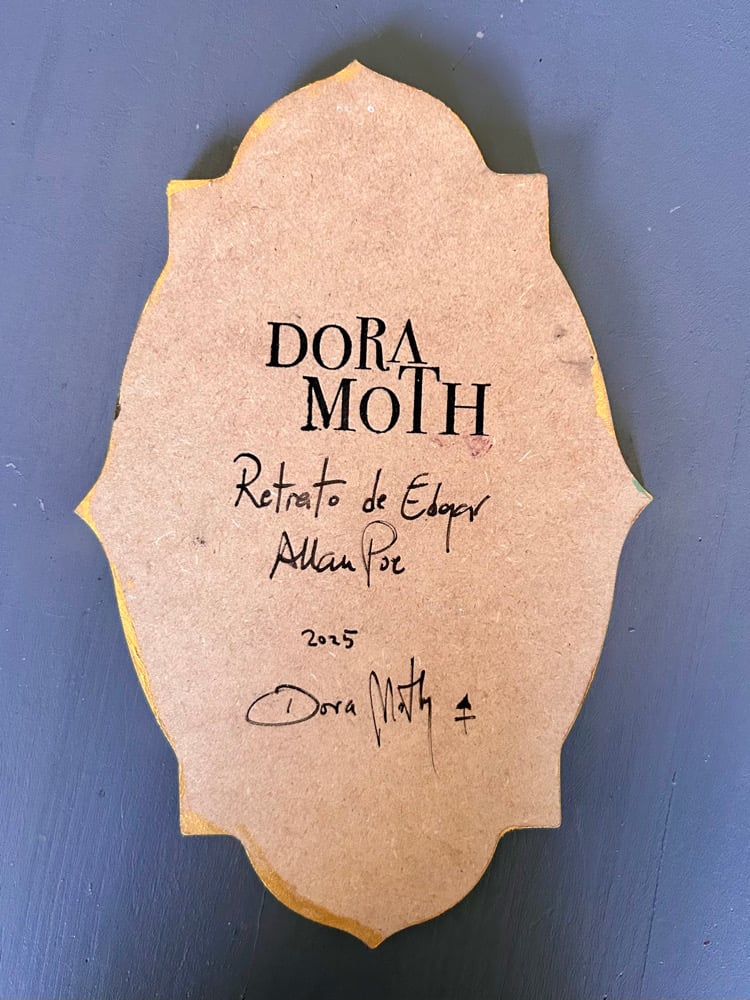 DORA
MOTH
Retrato de Edgar
Allan Poe
2025
Dora Moth